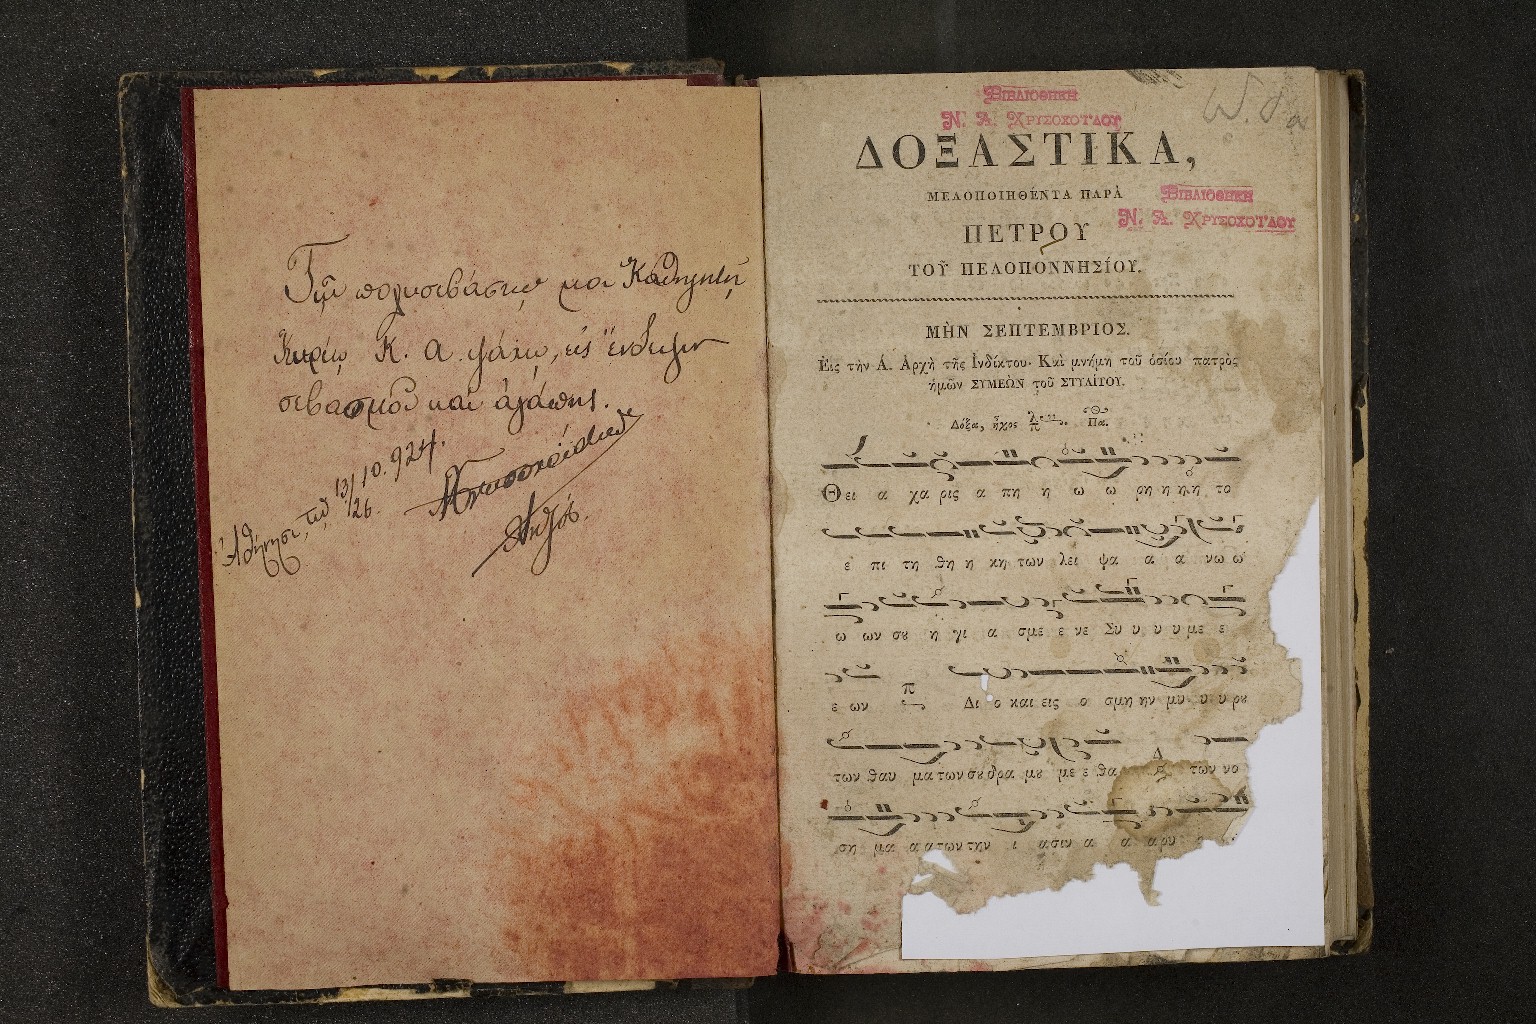 Τῷ πολυσεβάστῳ μοι Καθηγητῇ
Κυρίῳ Κ. Α. Ψάχῳ, εἰς ἔνδειξιν
σεβασμοῦ καὶ ἀγάπης.
Ἀθήνησι, τῇ 13/26 10. 924.
ΒΙΒΛΙΟΘΗΚΗ
Ν. Α. ΧΡΥΣΟΧΟΓΔΟΥ
ΔΟΞΑΣΤΙΚΑ,
ΜΕΛΟΠΟΙΗΘΕΝΤΑ ΠΑΡΑ
ΒΙΒΛΙΟΘΗΚΗ
Ν. Α. ΧΡΥΣΟΧΟΓΔΟΥ
ΠΕΤΡΟΥ
ΤΟΥ͂ ΠΕΛΟΠΟΝΝΗΣΊΟΥ.
ΜῊΝ ΣΕΠΤΕΜΒΡΙΟΣ.
Εἰς τὴν Α. Ἀρχὴ τῆς Ἰνδίκτου· Καὶ μνήμη τοῦ ὁσίου πατρὸς
ἡμῶν ΣΥΜΕῺΝ τοῦ ΣΤΥΛΙΤΟΥ.
Δόξα, ἦχος Πα.
Θει α χα ρις α πη η ω ω ρη η η η το
ε πι τη θη η κη των λει ψα α α νω ω
ω ων σȣ η γι α σμε ε νε Συ υ υ υ με ε
ε ων π Δι ο και εις ο σμη ην μυ υ υ ρȣ
των θαυ μα των σȣ δρα μȣ με ε θα Δ των νο
ση μα α α των την ι ασιν α α αρυ